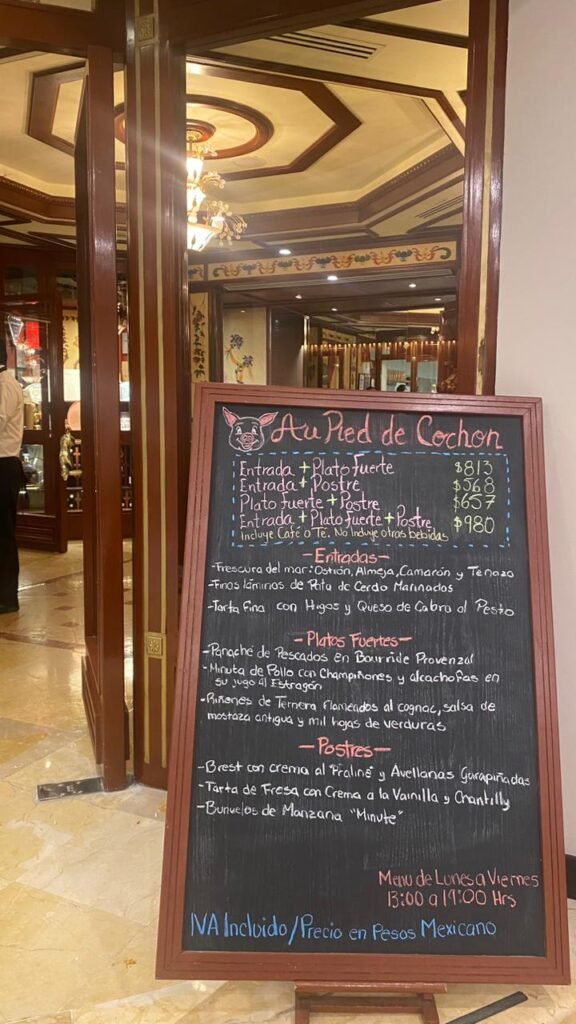 Au Pied de Cochon
Entrada + Plato Fuerte $813
Entrada + Postre $568
Plato fuerte + Postre $657
Entrada + Plato fuerte + Postre $980
Incluye Café o Té. No Incluye otras bebidas
-Entradas-
-Frescura del mar: Ostión, Almeja, Camarón y Tenaza
-Finas láminas de Pata de Cerdo Marinados
-Tarta Fina con Higos y Queso de Cabra al Pesto
-Platos Fuertes-
-Panaché de Pescados en Bourride Provenzal
-Minuta de Pollo con Champiñones y alcachofas en
su jugo al Estragón
-Riñones de Ternera flameados al cognac, salsa de
mostaza antigua y mil hojas de verduras
-Postres-
-Brest con crema al Praliné y Avellanas Garapiñadas
-Tarta de Fresa con Crema a la Vainilla y Chantilly
-Buñuelos de Manzana "Minute"
Menu de Lunes a Viernes
13:00 a 19:00 Hrs
IVA Incluido/Precio en Pesos Mexicano